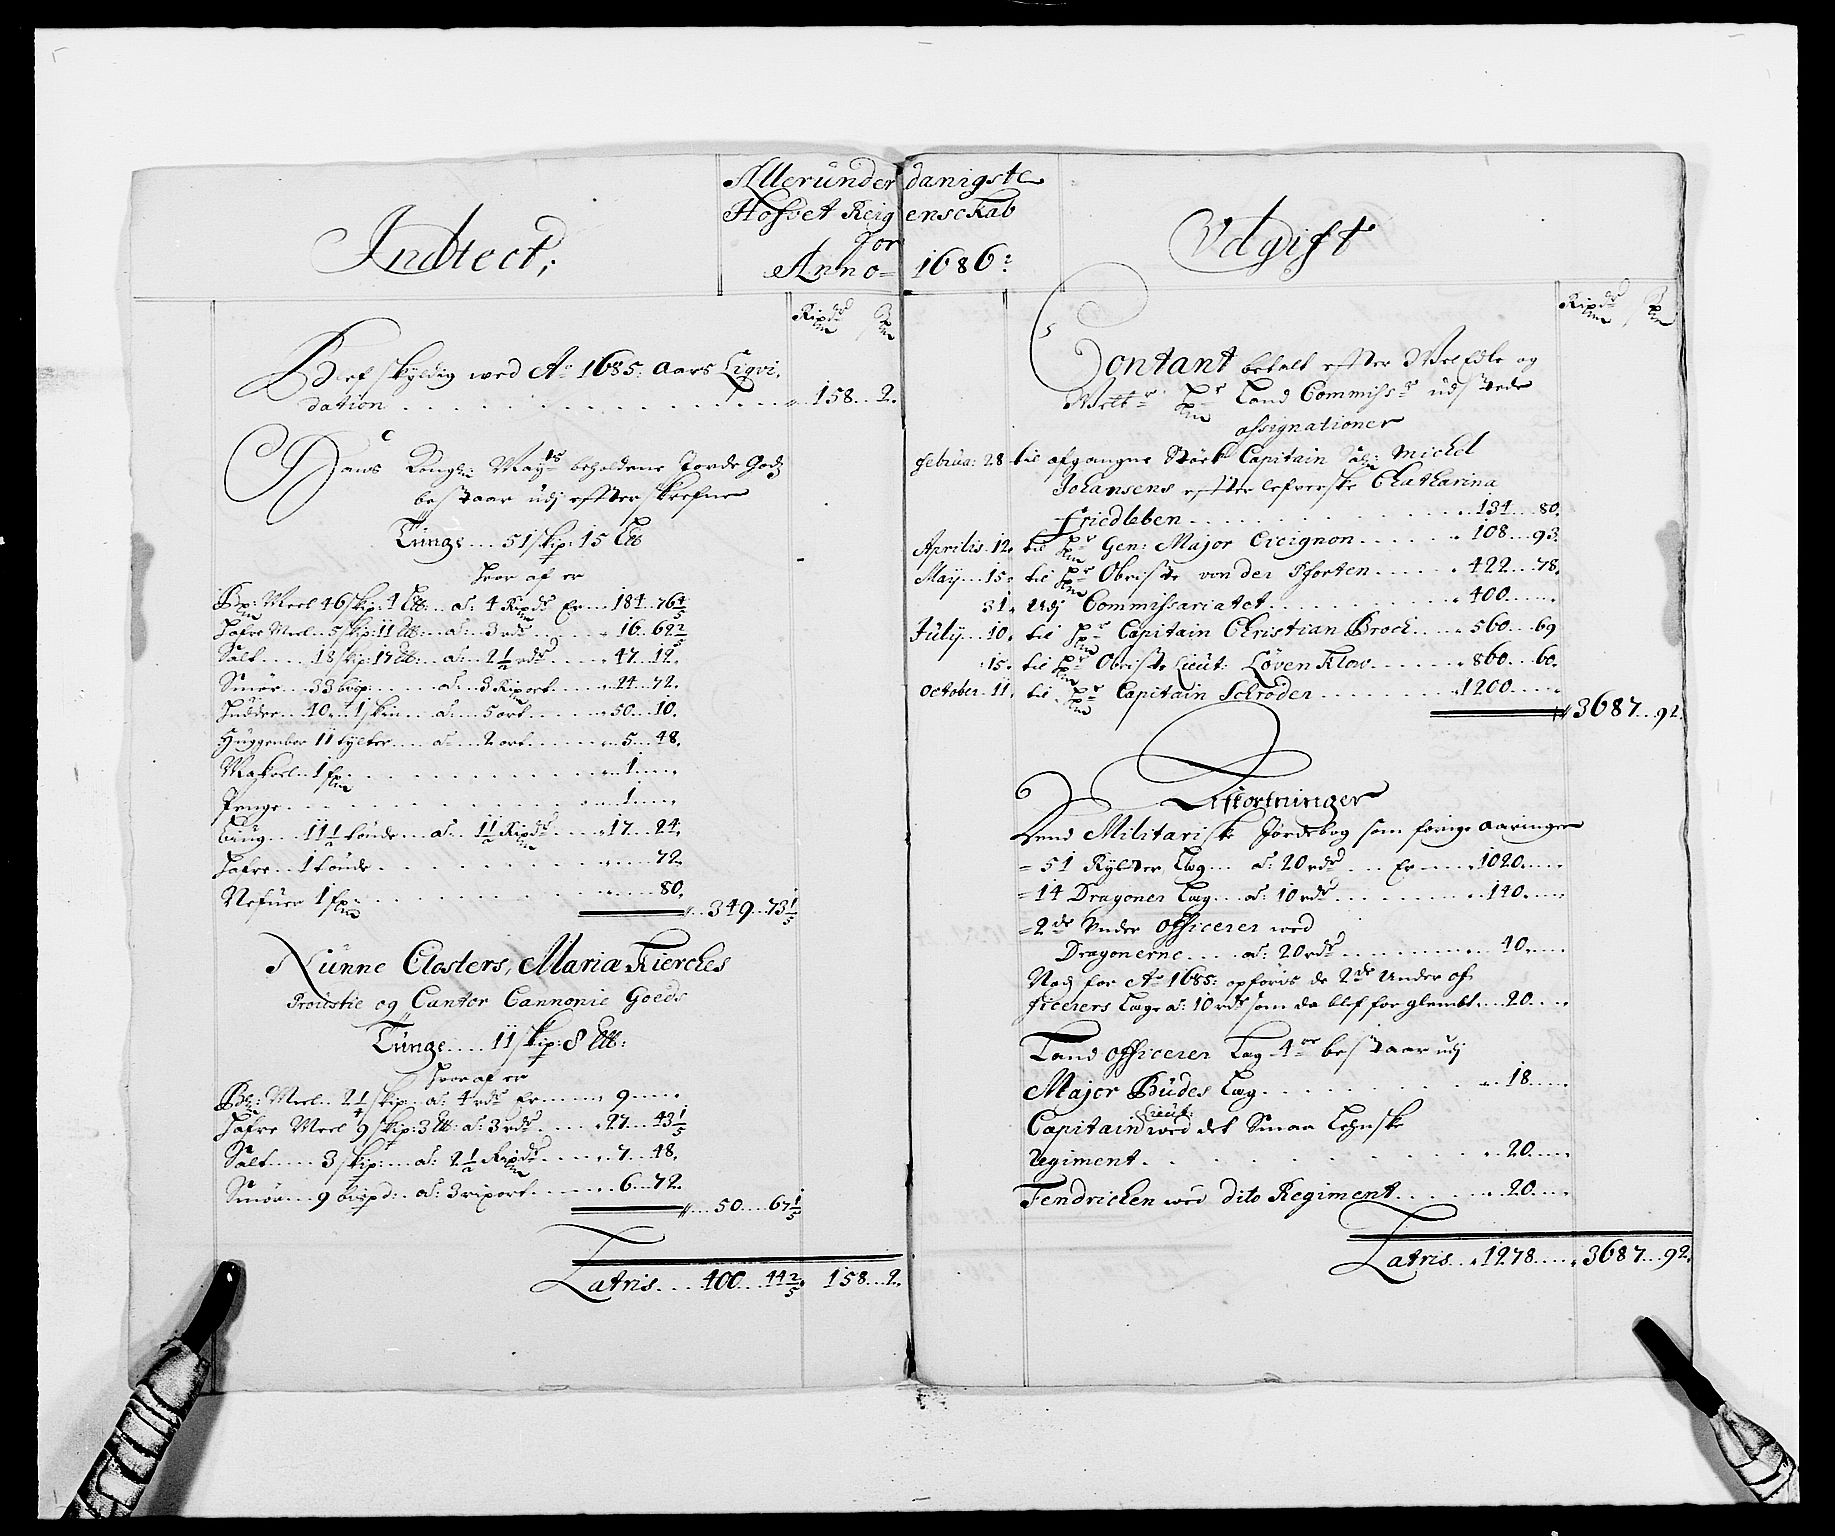 Allerunderdanigste
Hofvet Reigenskab
for
Anno 1686:
Indtect;
Ripdr
Blef skyldig wed Ao 1685: aars Liqvi,
dation . . . 158 . . 2.
Hans Kongl: Mayts beholdene Jorde Godz
bestaar udj effterskrefne
Tünge . . . 51 skip: 15 Lb
hvor af er
Bg: Meel 46 skip: 4 Lb: a: 4 Ripdr Er . . . 184 . . 76 4/5
Hafre Meel . . 5 skip: 11 Lb: a: 3 rdr . . . 16 . . 69 2/5
Salt . . . 18 skip: 17 Lb: . . a: 2 1/2 rdr . . . 47 . . 12.
Smør . . 33 bisp: . . . a: . . 3 Riport . . . 24 . . 72.
Hudder . . 40 . . 1 skin . . a: . . 5 ort . . . 50 . . 10.
Huggenber 11 tylter . . . a: . . 2 ort . . . 5 . . 48.
Makrel . . 1 . . . 1 . . .
Penge . . . 1 . . .
Biug . . . 11 1/2 tønde . . a: . . 1 1/2 Ripdr . . . 17 . . 24.
Hafre . . 1 tønde . . . 72.
Nefuer 1 . . . 80.
349 . . 73 1/5
Nünne Closters, Mariæ Kierches
Proustie og Cantor Cannonie Goeds
Tünge . . . . 11 skip: 8 Lb:
hvor af er
Bg: Meel . . 2 1/4 skip . . a: 4 rdr Er . . . 9 . . .
Hafre Meel 9 skip: 3 Lb: a: 3 rdr . . . 27 . . 43 1/5
Salt . . . 3 skip: . . . a: 2 1/2 Ripdr . . . 7 . . 48.
Smør . . . 9 bispd: a: 3 riport . . . 6 . . 72.
50 . . . 67 1/5
Latris . . . 400 . . 44 2/5 158 . . 2.
Udgift
Ripdr
Contant betalt effter Wel Edle og
Land Commiss: udstede
assignationer
Februa: 28 til afgangne Capitain Sal: Michel
Johansens effterlefverske Chatharina
Friedleben . . . 134 . . 80.
Aprilis 12. til Hr Gen: Major Cicignon . . . 108 . . 93.
Maij . . 15. til Hr Obriste von der Pforten . . . 422 . . 78.
31. Udj Commissariatet . . . 400 . . .
Julij . . 10. til Hr Capitain Christian Brock . . . 560 . . 69
15. til Hr Obriste Lieut: Løven Klov . . . 860 . . 60.
October . 11. til Hr Capitain Schrøder . . . 1200 . . .
3687 . . 92.
Afkortninger
Dend Militariske Jordebog som forige aaringer
51 Rytter Læg . . . a: 20 rdr . . . Er . . . 1020 . . .
14 Dragoner Læg . . . a: 10 rdr . . . 140 . . .
2de Under officerer wed
Dragonerne . . . a: 20 rdr . . . 40 . . .
Nock for Ao 1685: opføris de 2de Under of
ficerers Læge a: 10 rdr som da blef forglembt . . 20 . . .
Land officerer Læg 4er bestaar udj
Major Büdes Læg . . . 18 . . .
Capitain Lieut: wed det Smaa Lehnske
Regiment . . . 20 . . .
Fendrichen wed dito Regiment . . . 20 . . .
Latris . . 1278 . . . 3687 . . 92.